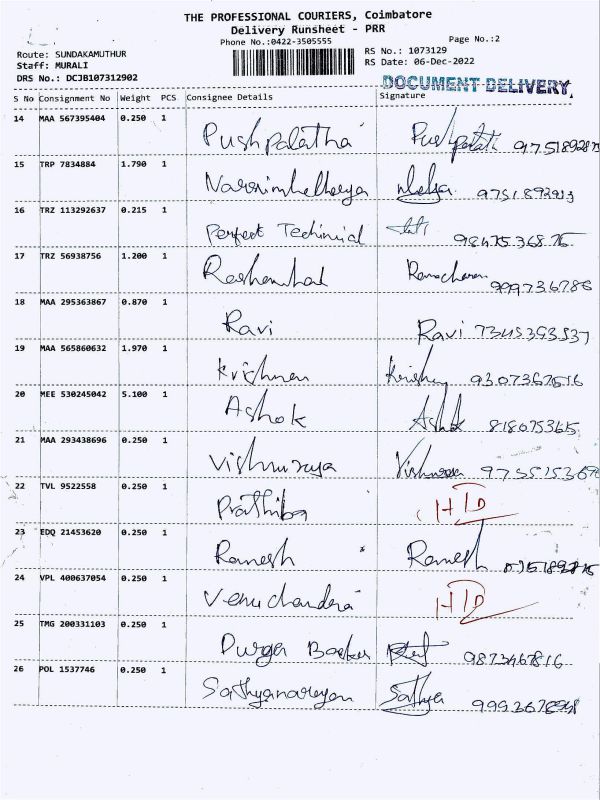 THE PROFESSIONAL COURIERS, Coimbatore
Delivery Runsheet - PRR
Phone No.:0422-3505555
Page No.:2
Route: SUNDAKAMUTHUR
RS No.: 1073129
Staff: MURALI
RS Date: 06-Dec-2022
DRS No.: DCJB107312902
DOCUMENT DELIVERY
S No Consignment No Weight PCS Consignee Details Signature
14 MAA 567395404 0.250 1 Pushpalatha
15 TRP 7834884 1.790 1 9751892913
16 TRZ 113292637 0.215 1 Perfect
17 TRZ 56938756 1.200 1 999736786
18 MAA 295363867 0.870 1 Ravi Ravi 7345393537
19 MAA 565860632 1.970 1 Krishnan 9307367516
20 MEE 530245042 5.100 1 Ashok Ashok 818675365
21 MAA 293438696 0.250 1 Vishnuraya
22 TVL 9522558 0.250 1 Prathiba H/D
23 EDQ 21453620 0.250 1 Ramesh Ramesh
24 VPL 400637054 0.250 1 Venuchandra H/D
25 TMG 200331103 0.250 1 Durga 9873467816
26 POL 1537746 0.250 1 Sathyanarayan Sathya